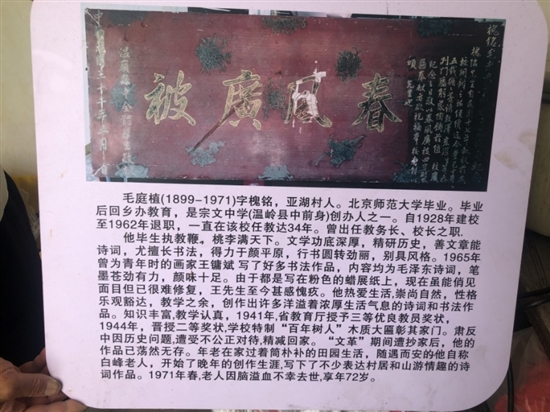 被廣風春
毛庭植(1899-1971)字槐铭，亚湖村人。北京师范大学毕业。毕业
后回乡办教育，是宗文中学(温岭县中前身)创办人之一。自1928年建校
至1962年退职，一直在该校任教达34年。曾出任教务长、校长之职.
他毕生执教鞭，桃李满天下。文学功底深厚，精研历史，善文章能
诗词，尤擅长书法，得力于颜平原，行书圆转劲丽，别具风格。1965年
曾为青年时的画家王镛斌 写了好多书法作品，内容均为毛泽东诗词，笔
墨苍劲有力，颜味十足。由于都是写在粉色的蜡展纸上，现在虽能倘见
面目但已很难修复，王先生至今甚感愧疚。他热爱生活,崇尚自然，性格
乐观豁达，教学之余，创作出许多洋溢着浓厚生活气息的诗词和书法作
品。知识丰富,教学认真，1941年,省教育厅授予三等优良教员奖状，
1944年，晋授二等奖状,学校特制“百年树人”木质大匾彰其家门。肃反
中因历史问题,遭受不公正对待,精减回家。“文革”期间遭抄家后，他的
作品已荡然无存。年老在家过着简朴补的田园生活，随遇而安的他自称
白峰老人，开始了晚年的创作生涯,写下了不少表达村居和山游情趣的诗
词作品。1971年春,老人因脑溢血不幸去世,享年72岁。